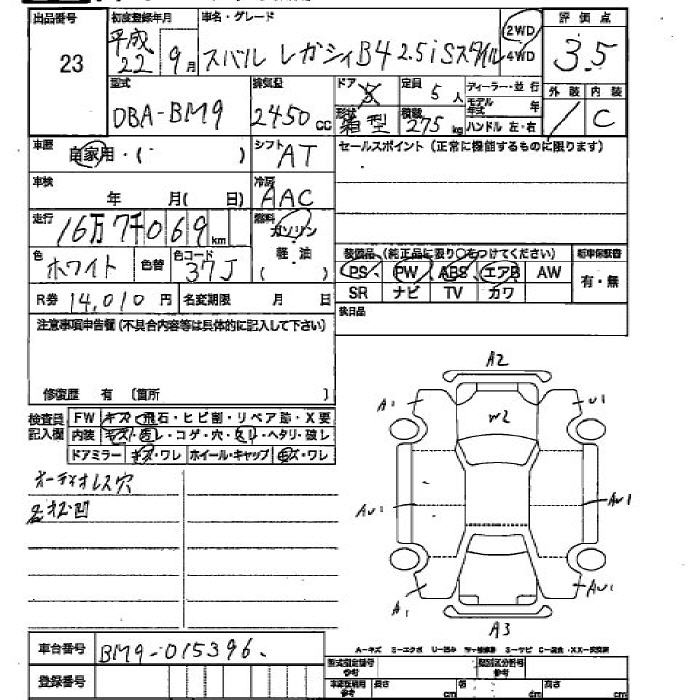 出品番号 23
初度登録年月 平成22年9月
車名・グレード スバル レガシィB4 2.5iSスタイル
2WD
4WD
評価点 3.5
型式 DBA-BM9
排気量 2450cc
ドア 5
定員 5人
ディーラー・並行
モデル年式 年
外装 内装
C
形状 箱型
積載 275kg
ハンドル 左・右
車歴 自家用・( )
シフト AT
セールスポイント(正常に機能するものに限ります)
車検 年 月( 日)
冷房 AAC
走行 16万7千069km
燃料 ガソリン
軽・油
( )
色 ホワイト
色替
色コード 37J
装備品(純正品に限り○をつけてください)
新車保証書
PS PW ABS エアB AW
有・無
SR ナビ TV カワ
R券 14,010円
名変期限 月 日
後日品
注意事項申告欄(不具合内容等は具体的に記入して下さい)
修復歴 有 〔箇所 〕
検査員記入欄
FW キズ・飛石・ヒビ割・リペア跡・X要
内装 キズ・汚レ・コゲ・穴・スリ・ヘタリ・破レ
ドアミラー キズ・ワレ ホイール・キャップ キズ・ワレ
オーディオレス穴
A2
A1
U1
W2
AU1
AU1
A1
AU1
A3
車台番号 BM9-015396.
A-キズ E-エクボ U-凹み W-補修跡 S-サビ C-腐食 ・XX-交換済
登録番号
型式指定番号 参考
類別区分番号 参考
長さ cm 幅 cm 高さ cm